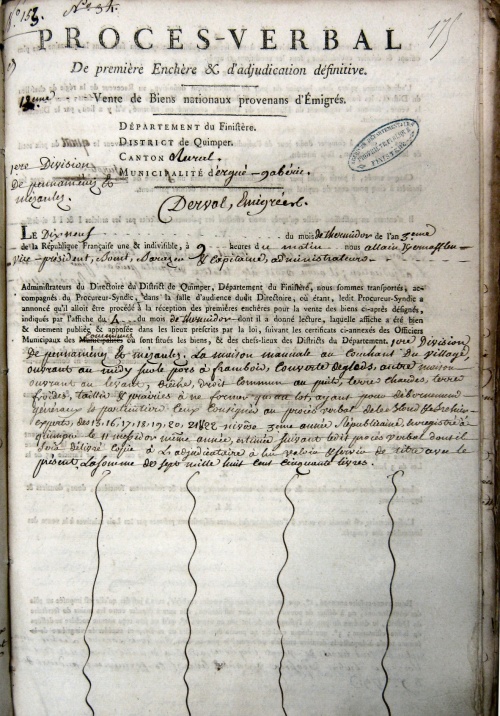 N.° 153.
N.° 34.
175
PROCES-VERBAL
De première Enchère & d'adjudication définitive.
Vente de Biens nationaux provenans d'Émigrés.
DÉPARTEMENT du Finistère.
DISTRICT de Quimper.
CANTON Rural.
MUNICIPALITÉ d'ergué-gabéric.
1ere Division
De pennaménez &
mézanlez.
Derval, Emigré.
LE Dix-neuf du mois de thermidor de l'an 3eme
de la République Française une & indivisible, à 9 heures du matin nous allain,
vice-président, & Capitaine, administrateurs
Administrateurs du Directoire du District de Quimper, Département du Finistère, nous sommes transportés, ac-
compagnés du Procureur-Syndic, dans la salle d'audience dudit Directoire, où étant, ledit Procureur-Syndic a
annoncé qu'il alloit être procédé à la réception des premières enchères pour la vente des biens ci-après désignés,
indiqués par l'affiche du 4 du mois de thermidor dont il a donné lecture, laquelle affiche a été bien
& duement publiée & apposée dans les lieux prescrits par la loi, suivant les certificats ci-annexés des Officiers
Municipaux des communes où sont situés les biens, & des chefs-lieux des Districts du Département. 1ere division
de pennaménez & mézanlez. La maison manale au couchant du village,
ouvrant au midy, couverte de gleds, autre maison
ouvrant au levant, droit commun au puits, terres chaudes, terre
froides, taillis & prairies à ne former qu'un lot, ayant pour débornement
généraux & particuliers ceux consignés au procès verbal de
experts, des 15, 16, 17, 18, 19, 20, 21 & 22 nivôse 3eme année Républicaine, enregistré à
quimper le 11 messidor même année, estimée suivant ledit procès verbal dont il
sera délivré copie à L'adjudicataire à lui valoir & servir de titre avec le
présent, la somme de sept mille huit cent cinquante livres.